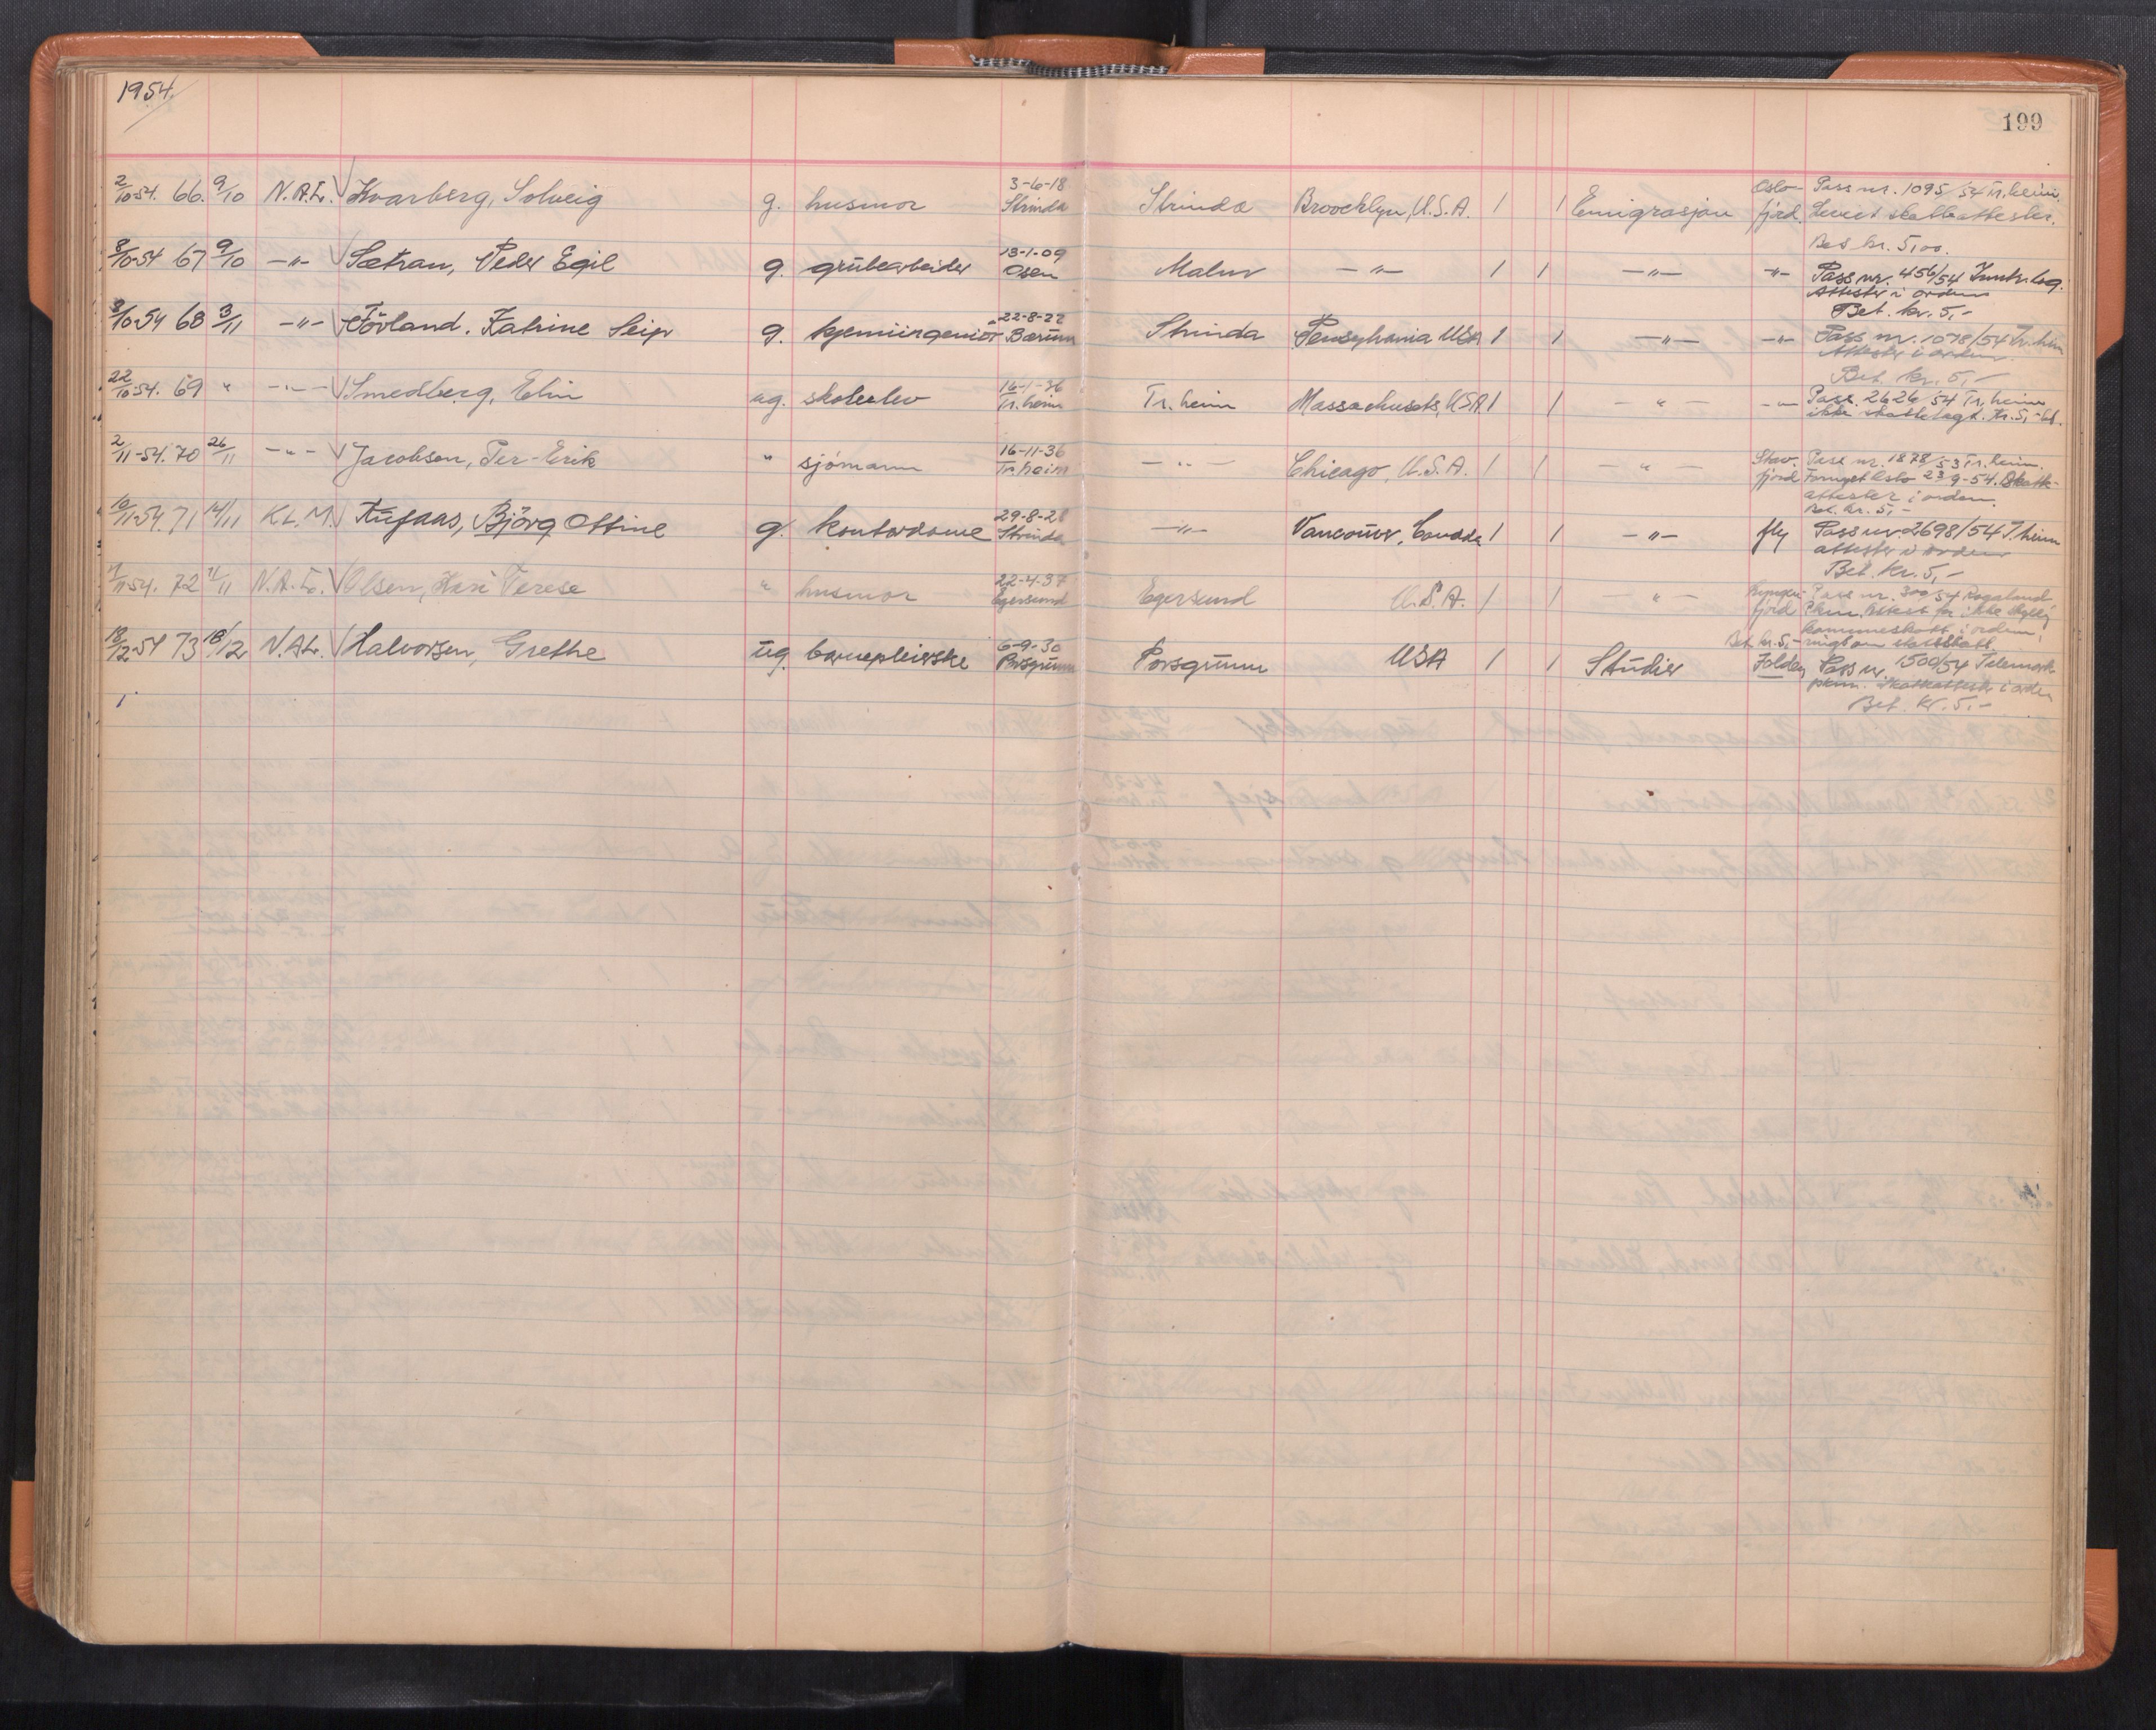 1954.
199
2/10-54. 66. 9/10 N.A.L. Kvarberg, Solveig g. husmor 3-6-18 Strinda Strinda Broocklyn, U.S.A. 1 1 Emigrasjon Oslofjord Pass nr. 1095/54 Tr.heim. skatteattester. Bet kr. 5,00.
8/10-54 67 9/10 -"- Sætran, Peder Egil g. grubearbeider 13-1-09 Osen Malm -"- 1 1 -"- -"- Pass nr. 456/54 Attester i orden Bet. kr. 5,-
8/10-54 68 3/11 -"- Tövland. Katrine Seip g. kjemiingeniör 22-8-22 Bærum Strinda Pensylvania USA 1 1 -"- -"- Pass nr. 1078/54 Tr.heim Attester i orden. Bet. kr. 5,-
22/10-54. 69 " -"- Smedberg, Elin ug. skoleelev 16-1-36 Tr.heim Tr.heim Massachusets, USA 1 1 -"- -"- Pass. 2626/54 Tr.heim ikke skattelagt. Kr. 5,- bet.
2/11-54. 70 26/11 -"- Jacobsen, Per-Erik " sjömann 16-11-36 Tr.heim -"- Chicago, U.S.A. 1 1 -"- Stav.fjord Pass nr. 1878/53 Tr.heim. Fornyet Oslo 23/9-54. Skatteattester i orden. Bet. kr. 5,-
10/11-54. 71 14/11 K.L.M. Aufaas, Björg Ottine g. kontordame 29-8-28 Strinda -"- Vancouver, Canada 1 1 -"- fly Pass nr. 2698/54 T.heim attester i orden Bet. kr. 5,-
11/11-54. 72 11/11 N.A.L. Olsen, Kari Terese " husmor 22-4-37 Egersund Egersund U.S.A. 1 1 -"- Lyngenfjord Pass nr. 300/54 Rogaland Pkm. Attest for ikke skyldig kommuneskatt i orden, Bet. kr. 5,- statsskatt.
18/12-54 73 18/12 N.A.L. Halvorsen, Grethe ug. barnepleierske 6-9-30 Porsgrunn Porsgrunn USA 1 1 Studier Foldan Pass nr. 1500/54 Telemark pkm. Skatteattester i orden Bet. kr. 5,-